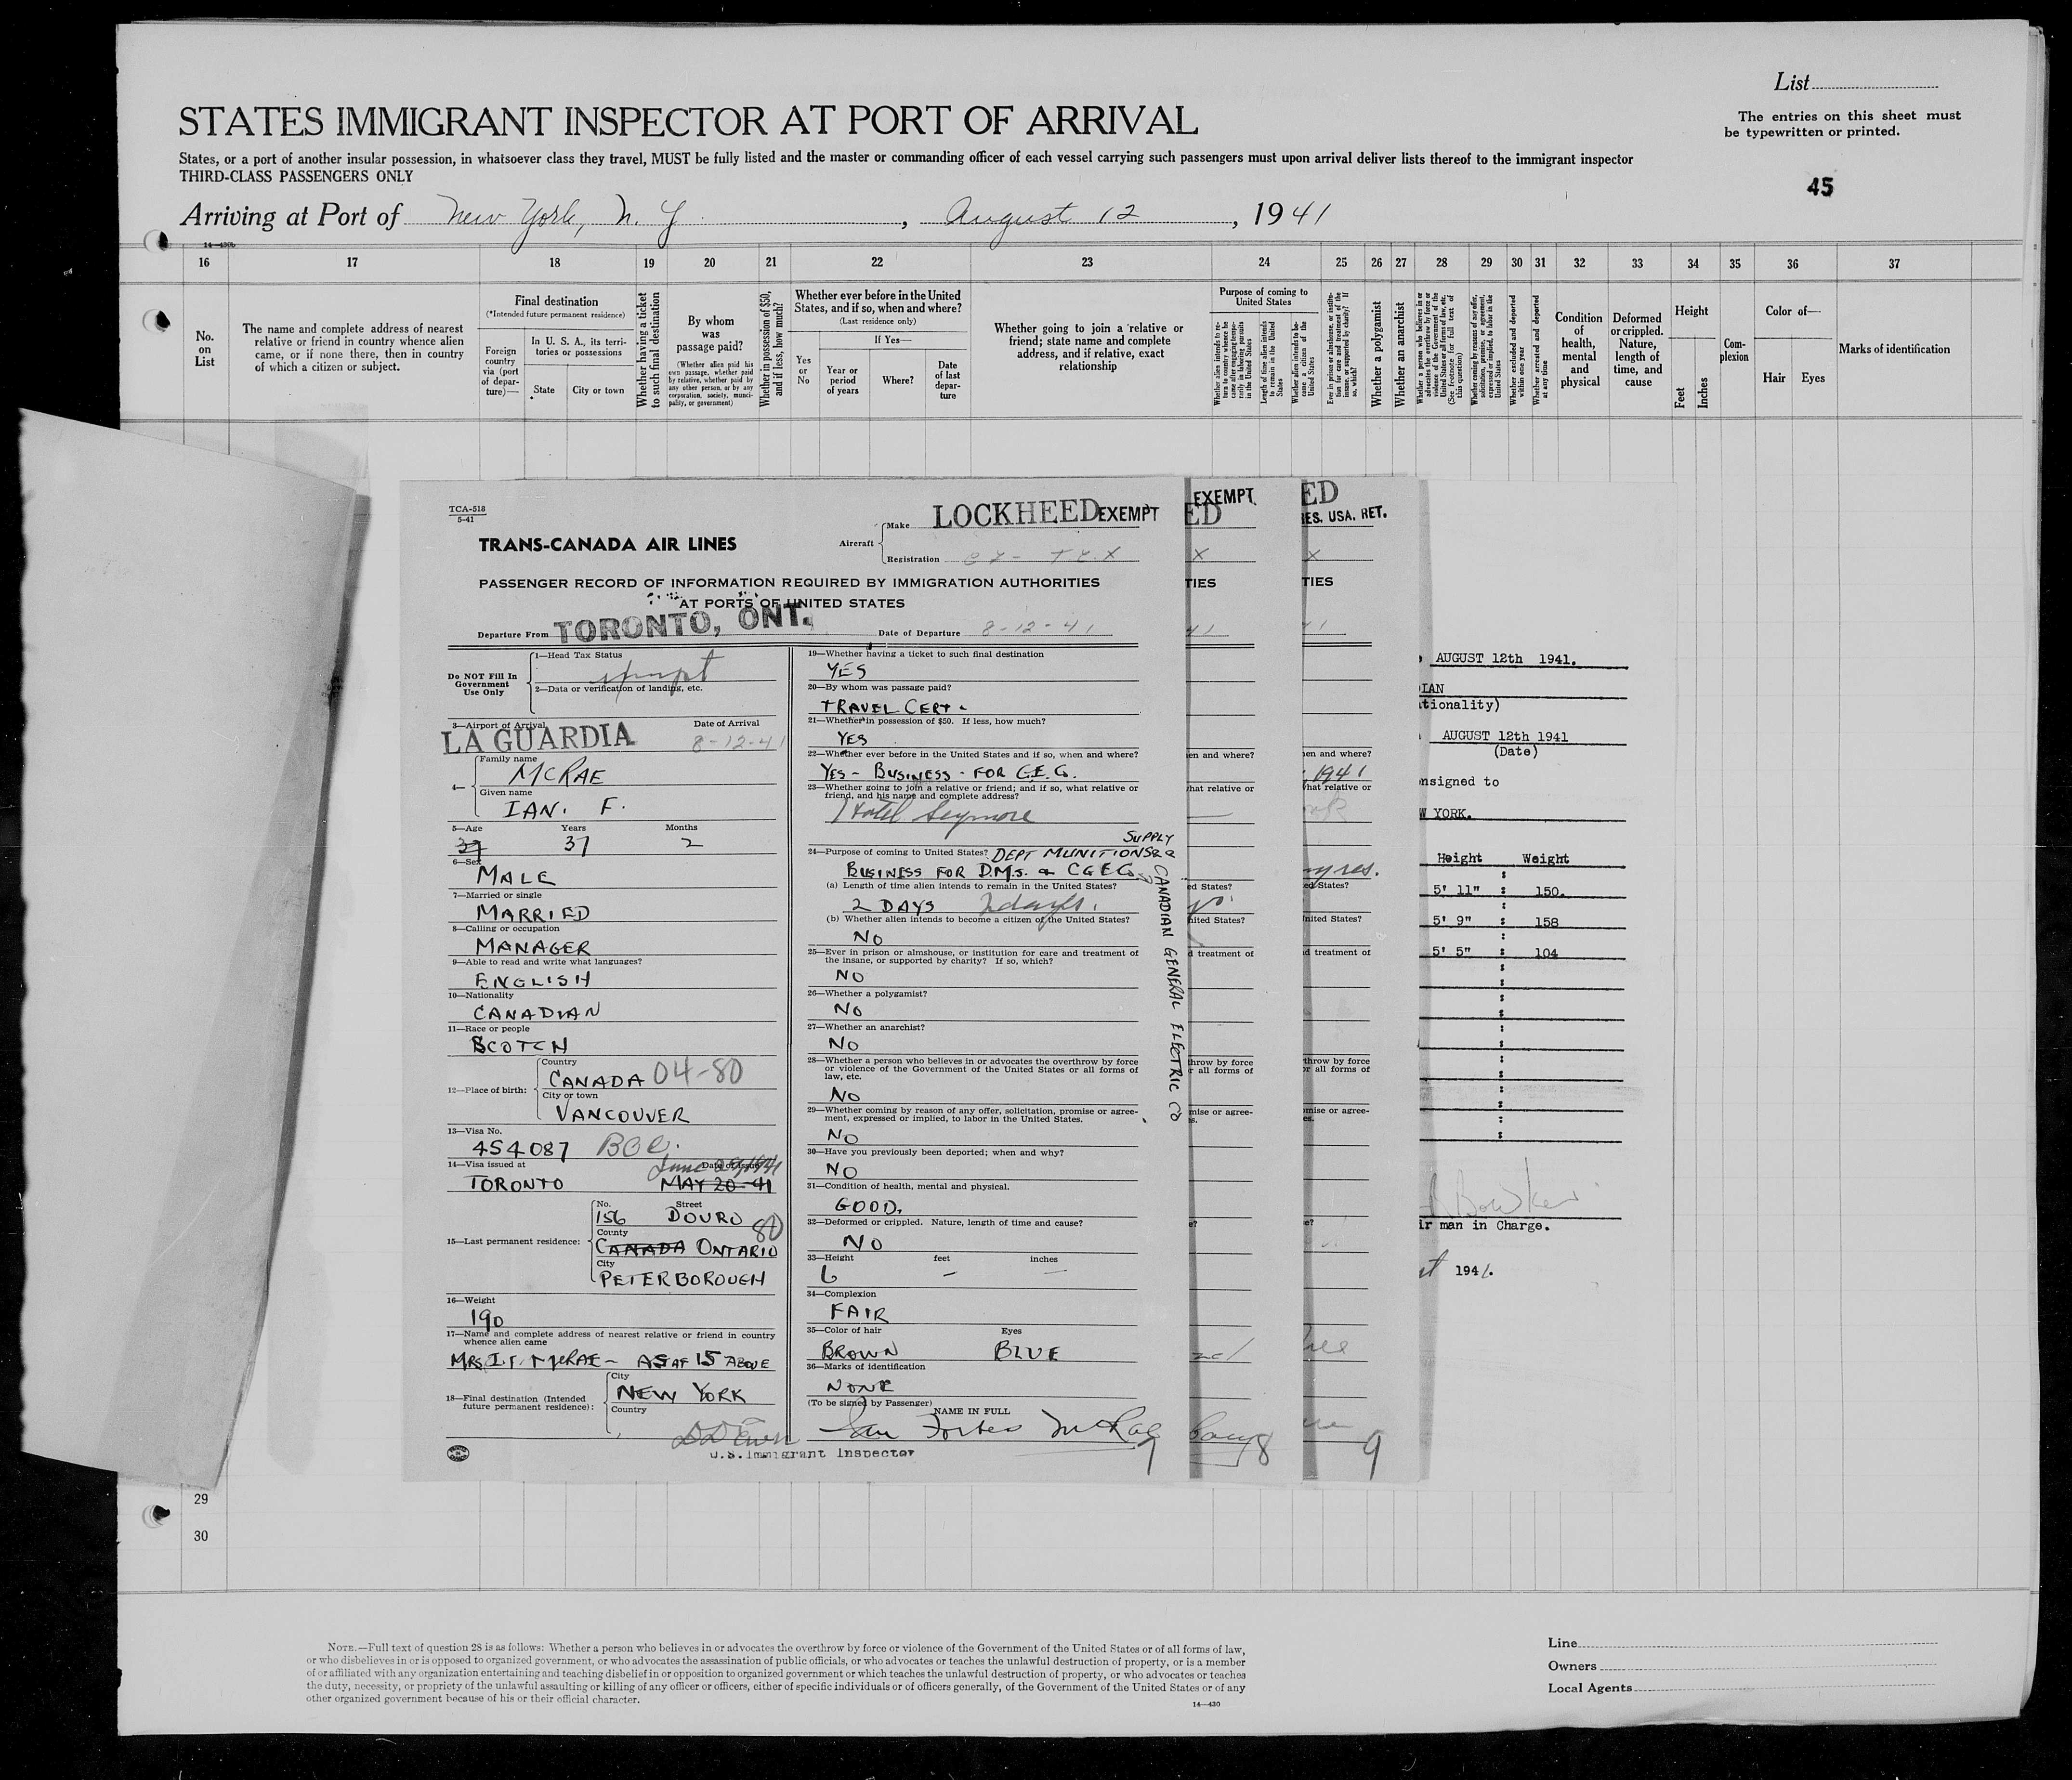 List
STATES IMMIGRANT INSPECTOR AT PORT OF ARRIVAL
The entries on this sheet must
be typewritten or printed.
States, or a port of another insular possession, in whatsoever class they travel, MUST be fully listed and the master or commanding officer of each vessel carrying such passengers must upon arrival deliver lists thereof to the immigrant inspector
THIRD-CLASS PASSENGERS ONLY
45
Arriving at Port of New York, N. Y. , August 12 , 1941
16 17 18 19 20 21 22 23 24 25 26 27 28 29 30 31 32 33 34 35 36 37
No. on List
The name and complete address of nearest
relative or friend in country whence alien
came, or if none there, then in country
of which a citizen or subject.
Final destination
(*Intended future permanent residence)
Foreign country via (port of departure)—
In U. S. A., its territories or possessions
State
City or town
Whether having a ticket to such final destination
By whom was passage paid?
(Whether alien paid his own passage, whether paid by relative, whether paid by any other person, or by any corporation, society, municipality, or government)
Whether in possession of $50, and if less, how much?
Whether ever before in the United States, and if so, when and where?
(Last residence only)
Yes or No
If Yes—
Year or period of years
Where?
Date of last departure
Whether going to join a relative or
friend; state name and complete
address, and if relative, exact
relationship
Purpose of coming to United States
Whether a polygamist
Whether an anarchist
Condition of health, mental and physical
Deformed or crippled. Nature, length of time, and cause
Height
Feet
Inches
Complexion
Color of—
Hair
Eyes
Marks of identification
TCA-518
5-41
TRANS-CANADA AIR LINES
Aircraft
Make LOCKHEED EXEMPT
Registration
PASSENGER RECORD OF INFORMATION REQUIRED BY IMMIGRATION AUTHORITIES
AT PORTS OF UNITED STATES
Departure From TORONTO, ONT.
Date of Departure 8-12-41
Do NOT Fill In Government Use Only
1—Head Tax Status
2—Data or verification of landing, etc.
3—Airport of Arrival Date of Arrival
LA GUARDIA 8-12-41
4— Family name
McRAE
Given name
IAN. F.
5—Age Years Months
37 2
6—Sex
MALE
7—Married or single
MARRIED
8—Calling or occupation
MANAGER
9—Able to read and write what languages?
ENGLISH
10—Nationality
CANADIAN
11—Race or people
SCOTCH
12—Place of birth: Country
CANADA 04-80
City or town
VANCOUVER
13—Visa No.
454087
14—Visa issued at Date of Issue
TORONTO MAY 20-41
15—Last permanent residence: No. Street
156 DOURO
County 80
CANADA ONTARIO
City
PETERBOROUGH
16—Weight
190
17—Name and complete address of nearest relative or friend in country
whence alien came
MRS I.F. McRAE - AS AT 15 ABOVE
18—Final destination (Intended future permanent residence):
City
NEW YORK
Country
U.S. Immigrant Inspector
19—Whether having a ticket to such final destination
YES
20—By whom was passage paid?
TRAVEL CERT.
21—Whether in possession of $50. If less, how much?
YES
22—Whether ever before in the United States and if so, when and where?
YES - BUSINESS - FOR C.G.E.
23—Whether going to join a relative or friend; and if so, what relative or
friend, and his name and complete address?
Hotel Seymore
SUPPLY
24—Purpose of coming to United States? DEPT MUNITIONS &
BUSINESS FOR D.M.S. & CGECo
CANADIAN GENERAL ELECTRIC CO
(a) Length of time alien intends to remain in the United States?
2 DAYS 2 days.
(b) Whether alien intends to become a citizen of the United States?
NO
25—Ever in prison or almshouse, or institution for care and treatment of
the insane, or supported by charity? If so, which?
NO
26—Whether a polygamist?
NO
27—Whether an anarchist?
NO
28—Whether a person who believes in or advocates the overthrow by force
or violence of the Government of the United States or all forms of
law, etc.
NO
29—Whether coming by reason of any offer, solicitation, promise or agree-
ment, expressed or implied, to labor in the United States.
NO
30—Have you previously been deported; when and why?
NO
31—Condition of health, mental and physical.
GOOD.
32—Deformed or crippled. Nature, length of time and cause?
NO
33—Height feet inches
6 — —
34—Complexion
FAIR
35—Color of hair Eyes
BROWN BLUE
36—Marks of identification
NONE
(To be signed by Passenger)
NAME IN FULL
Ian Forbes McRae
7
EXEMPT
ED
X
TIES
41
en and where?
hat relative or
ed States?
nited States?
d treatment of
hrow by force
r all forms of
mise or agree-
s.
e?
8
ED
RES. USA. RET.
X
TIES
41
en and where?
1941
hat relative or
ed States?
nited States?
d treatment of
throw by force
or all forms of
mise or agree-
es.
e?
9
AUGUST 12th 1941.
IAN
tionality)
AUGUST 12th 1941
(Date)
nsigned to
W YORK.
Height Weight
5' 11" : 150.
5' 9" : 158
5' 5" : 104
Bowker
ir man in Charge.
1941.
29
30
NOTE.—Full text of question 28 is as follows: Whether a person who believes in or advocates the overthrow by force or violence of the Government of the United States or of all forms of law,
or who disbelieves in or is opposed to organized government, or who advocates the assassination of public officials, or who advocates or teaches the unlawful destruction of property, or is a member
of or affiliated with any organization entertaining and teaching disbelief in or opposition to organized government or which teaches the unlawful destruction of property, or who advocates or teaches
the duty, necessity, or propriety of the unlawful assaulting or killing of any officer or officers, either of specific individuals or of officers generally, of the Government of the United States or of any
other organized government because of his or their official character.
14—430
Line
Owners
Local Agents